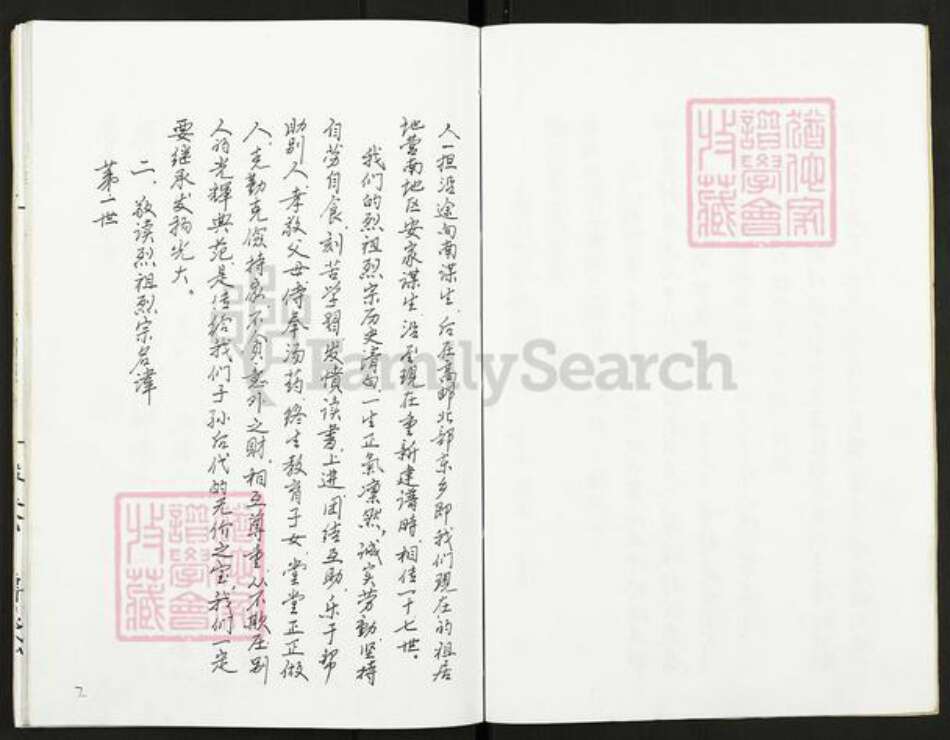 人一担沿途向南谋生.后在高邮北部东乡即我们现在的祖居
地营南地区安家谋生.沿至现在重新建谱時.相传一十七世。
我们的烈祖烈宗历史清白.一生正氣凛然,诚实劳動.坚持
自劳自食.刻苦学習.发愤读書.上進.团结互助.乐于帮
助别人.孝敬父母.侍奉汤药.终生教育子女.堂堂正正做
人.克勤克俭持家.不贪意外之財.相互尊重.从不欺压别
人的光輝典范.是传给我们子孙后代的无价之宝.我们一定
要继承发扬光大。
二、敬读烈祖烈宗名諱
苐一世
2
猶他家
譜學會
收藏
猶他家
譜學會
收藏
FamilySearch